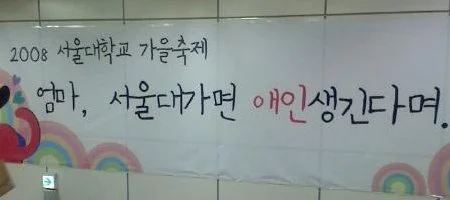 2008 서울대학교 가을축제
엄마, 서울대가면 애인생긴다며.